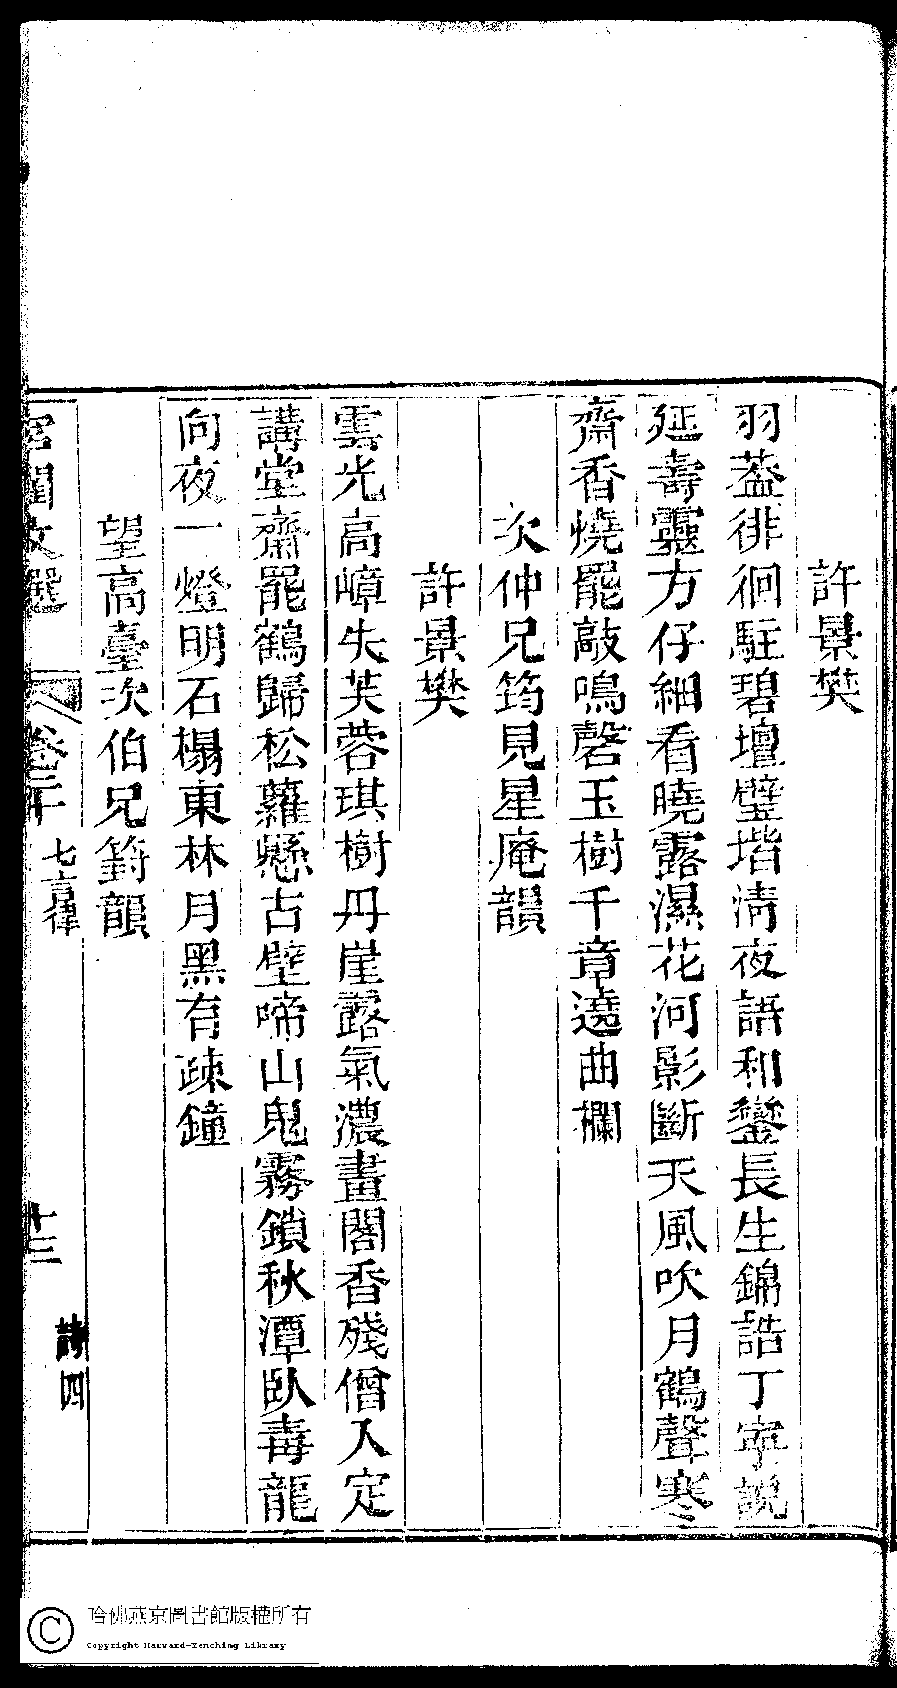 許景樊
羽葢徘徊駐碧壇璧堦淸夜語和鑾長生錦誥丁寧說
延壽靈方仔細看曉露濕花河影斷天風吹月鶴聲寒
齋香燒罷敲鳴磬玉樹千章遶曲欄
次仲兄筠見星庵韻
許景樊
雲光高嶂失芙蓉琪樹丹崖露氣濃畫閣香殘僧入定
講堂齋罷鶴歸松蘿懸古壁啼山鬼霧鎖秋潭臥毒龍
向夜一燈明石榻東林月黑有疎鐘
望高臺次伯兄篈韻
宮閨文選 卷二十 七言律 十三 詩四
哈佛燕京圖書館版權所有
Copyright Harvard-Yenching Library